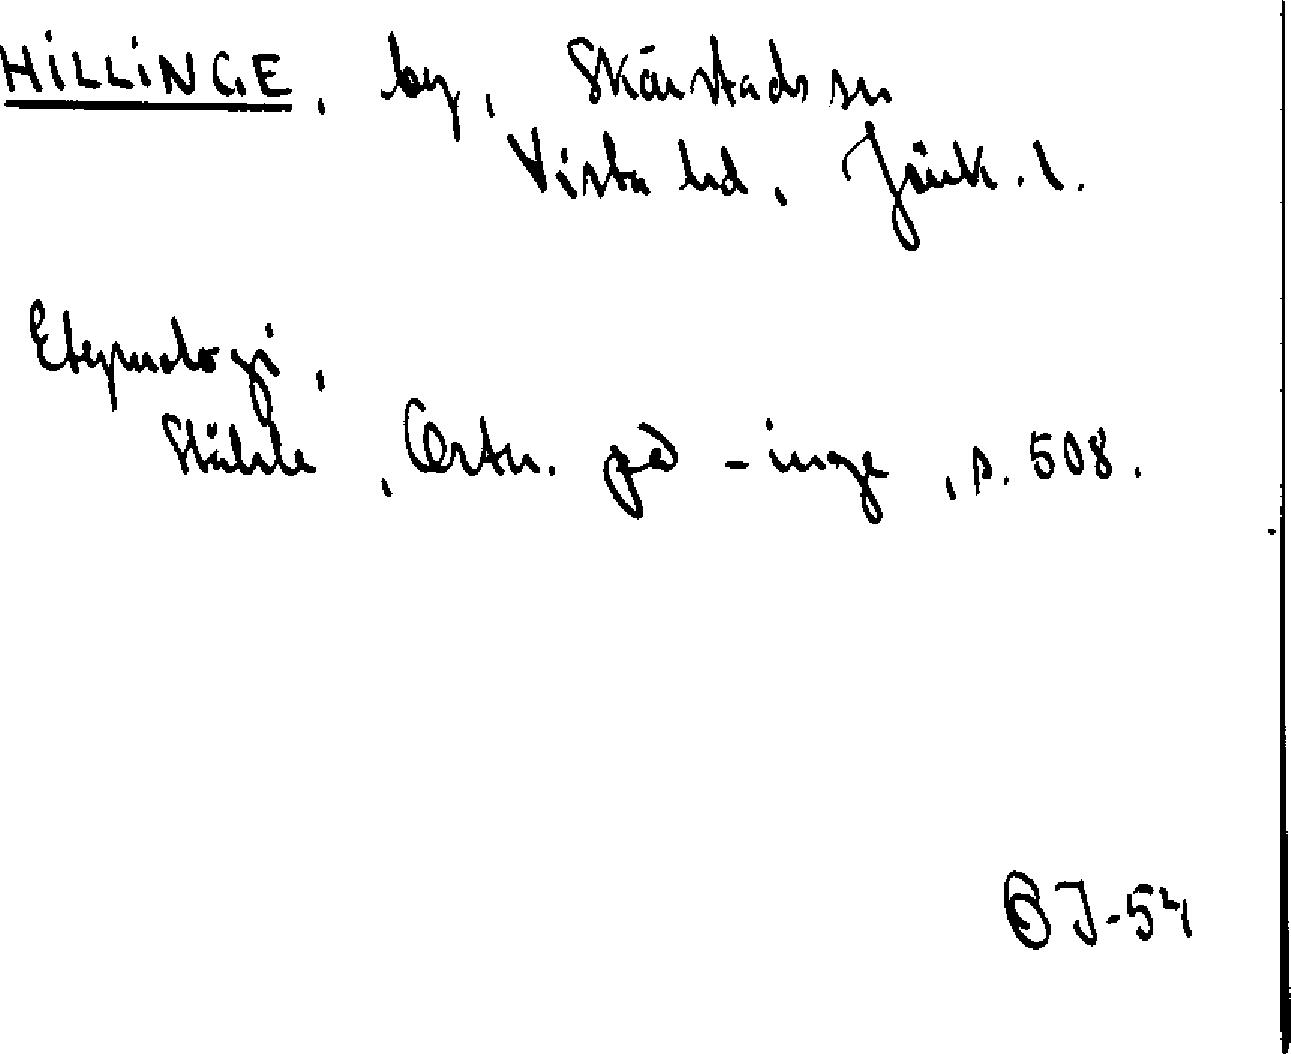 HILLINGE, by, Skärstads sn
Vista hd, Jönk. l.
Etymologi,
Ståhle, Ortn. på -inge, s. 508.
BJ-54